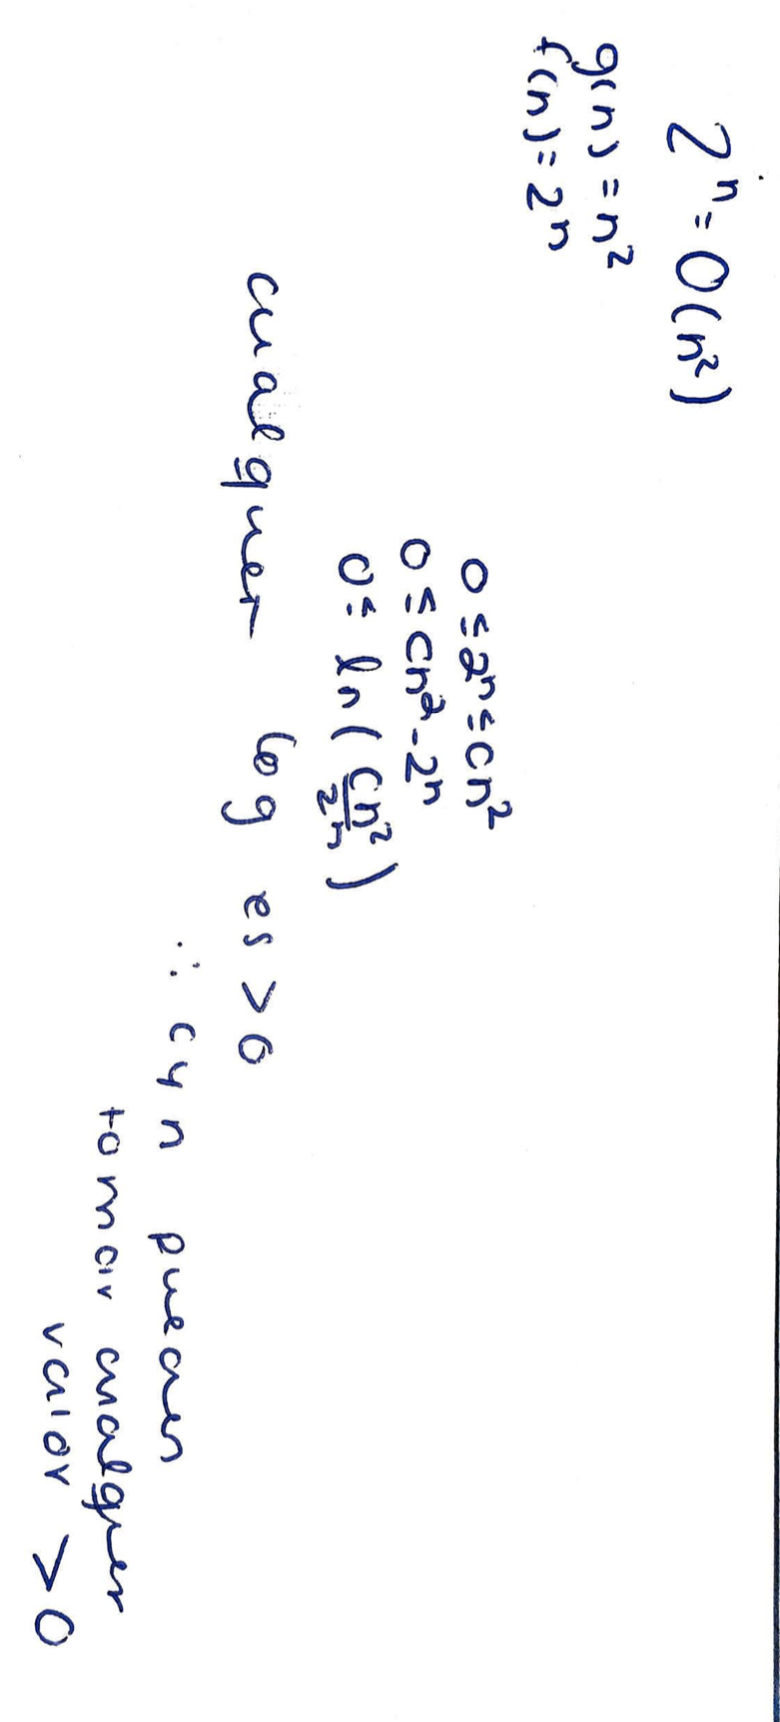 2ⁿ = O(n²)
g(n) = n²
f(n) = 2ⁿ
0 ≤ 2ⁿ ≤ cn²
0 ≤ cn² - 2ⁿ
0 ≤ ln(cn²/2ⁿ)
cualquier log es > 0
∴ c y n puean
tomar cualquier
valor > 0